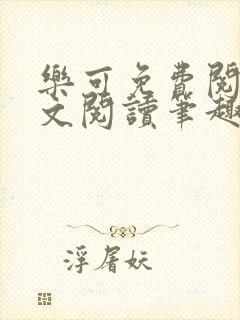 樂可免費閱
文閱讀筆趣
浮屠妖